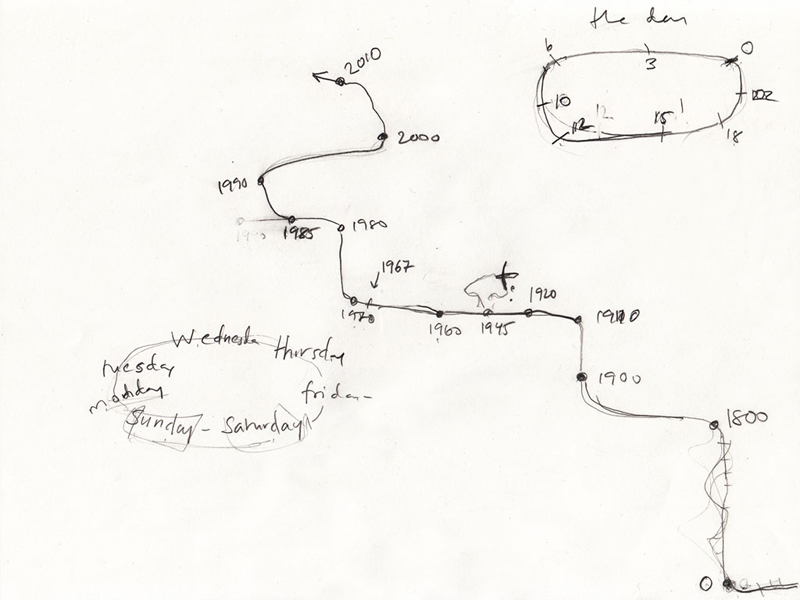 the day
2010
6
3
0
10
12
12
15
18
2000
1990
1985
1980
1967
1970
1960
1945
1920
1910
1900
1800
0
Wednesda
Thursday
Tuesday
Monday
friday
Sunday - Saturday